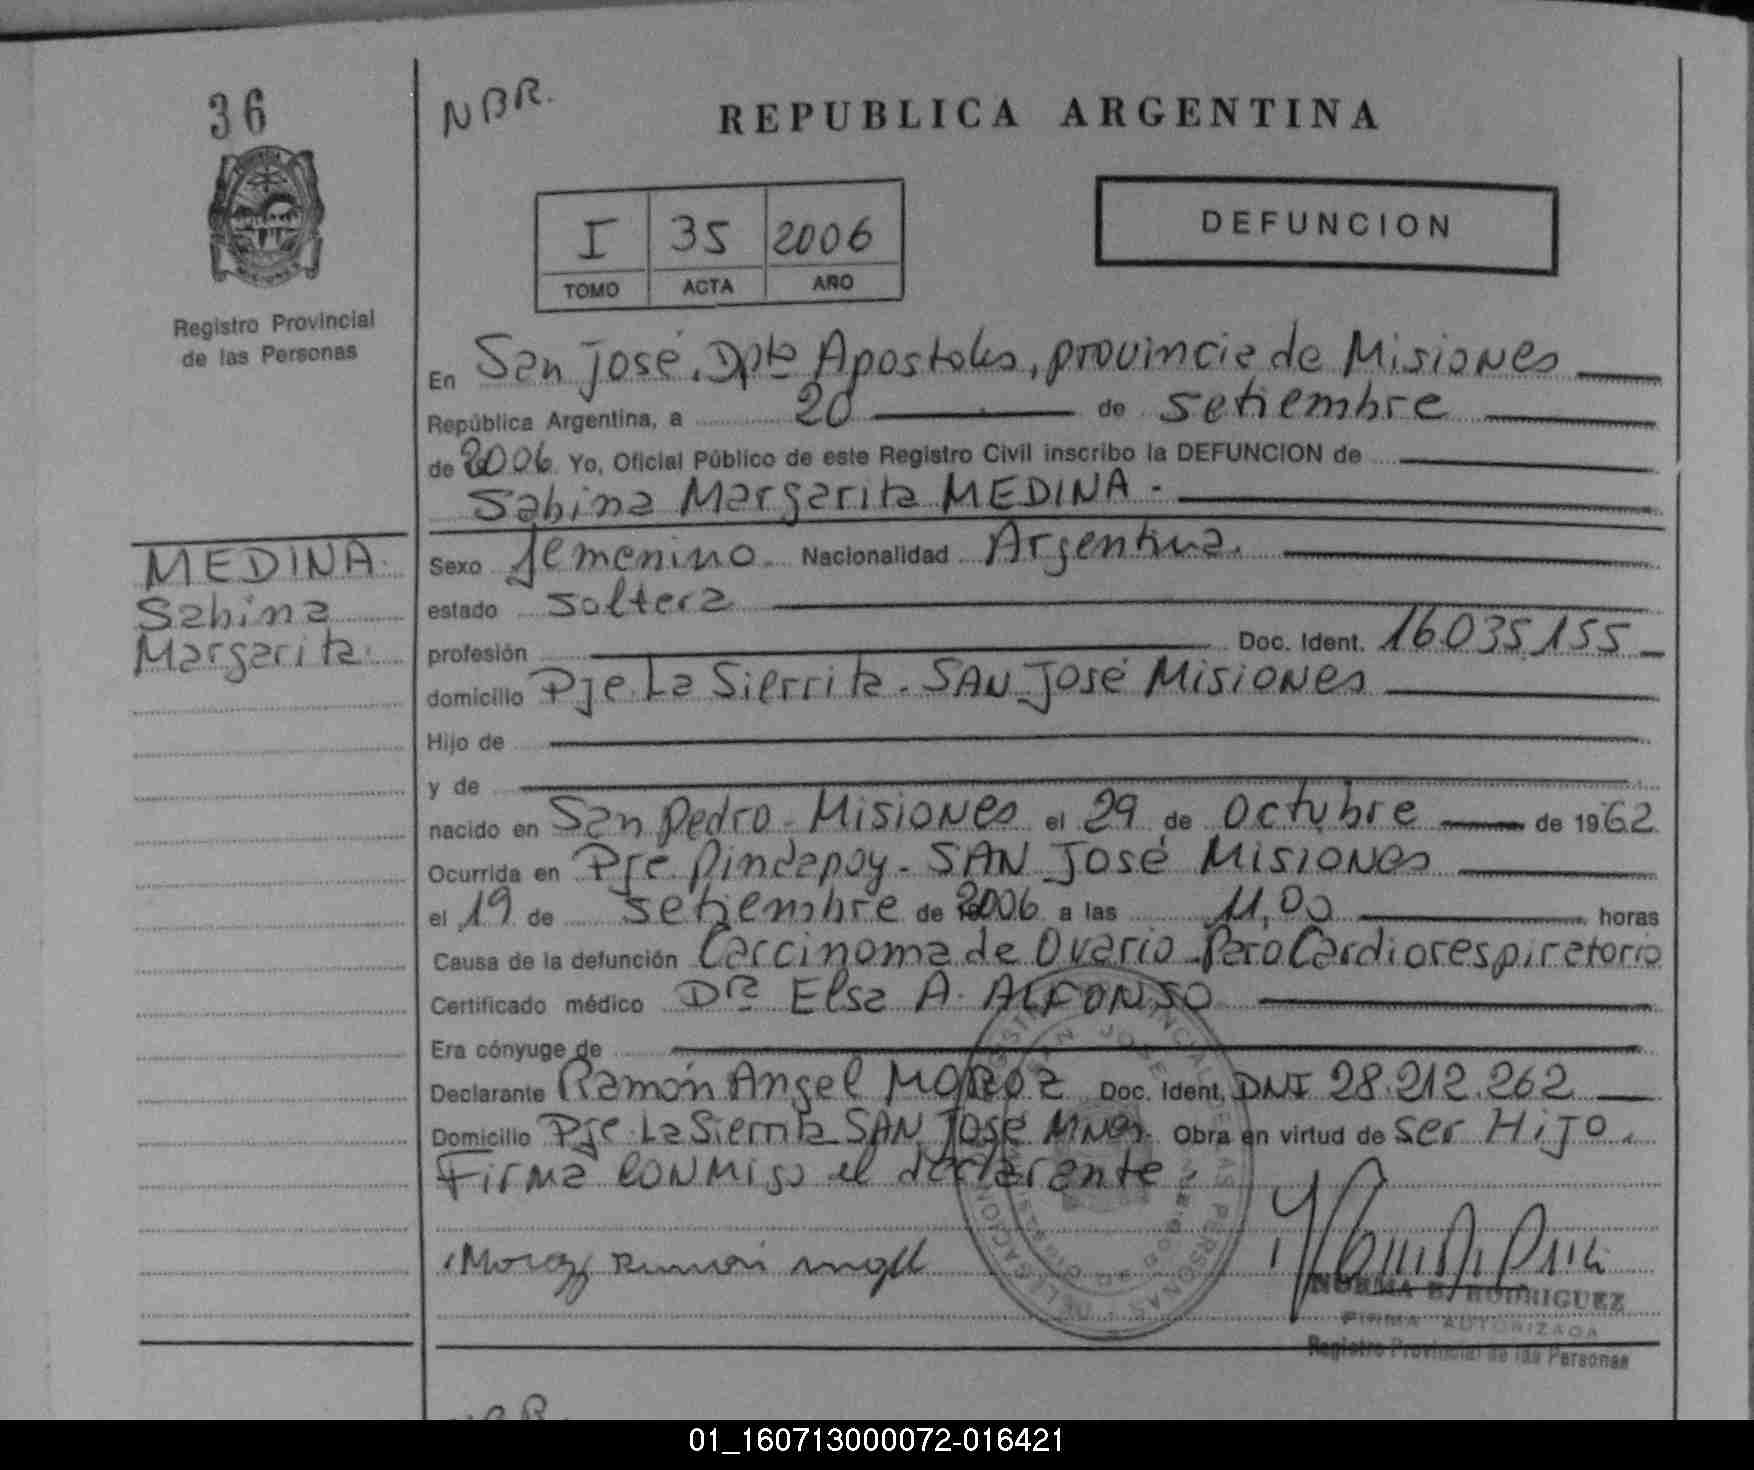 36
NBR.
REPUBLICA ARGENTINA
I 35 2006
TOMO ACTA AÑO
DEFUNCION
Registro Provincial
de las Personas
En San José, Dpto Apostoles, provincia de Misiones
República Argentina, a 20 de setiembre
de 2006 Yo, Oficial Público de este Registro Civil inscribo la DEFUNCION de
Sabina Margarita MEDINA.-
MEDINA.
Sabina
Margarita.
Sexo femenino. Nacionalidad Argentina.
estado soltera
profesión Doc. Ident. 16.035.155
domicilio Pje. La Sierrita. SAN José Misiones
Hijo de
y de
nacido en San Pedro - Misiones el 29 de Octubre de 1962
Ocurrida en Pje Pindapoy. SAN José Misiones
el 19 de setiembre de 2006 a las 11,00 horas
Causa de la defunción Carcinoma de Ovario - Paro Cardiorespiratorio
Certificado médico DRa Elsa A. ALFONSO
Era cónyuge de
Declarante Ramón Angel MOROZ Doc. Ident. DNI 28.212.262
Domicilio Pje. La Sierrita SAN José Mnes. Obra en virtud de ser Hijo.
Firma conmigo el declarante.
Moroz Ramon Angel
NORMA B. RODRIGUEZ
FIRMA AUTORIZADA
Registro Provincial de las Personas
01_160713000072-016421